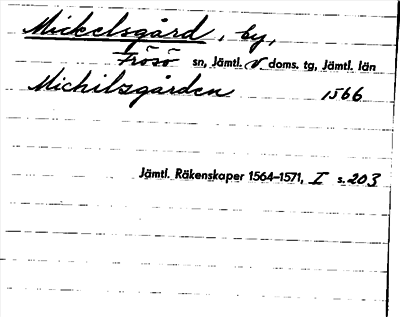 Mickelsgård, by,
Frösö sn, Jämtl. V doms. tg, Jämtl. län
Michilsgården 1566
Jämtl. Räkenskaper 1564-1571, I s. 203